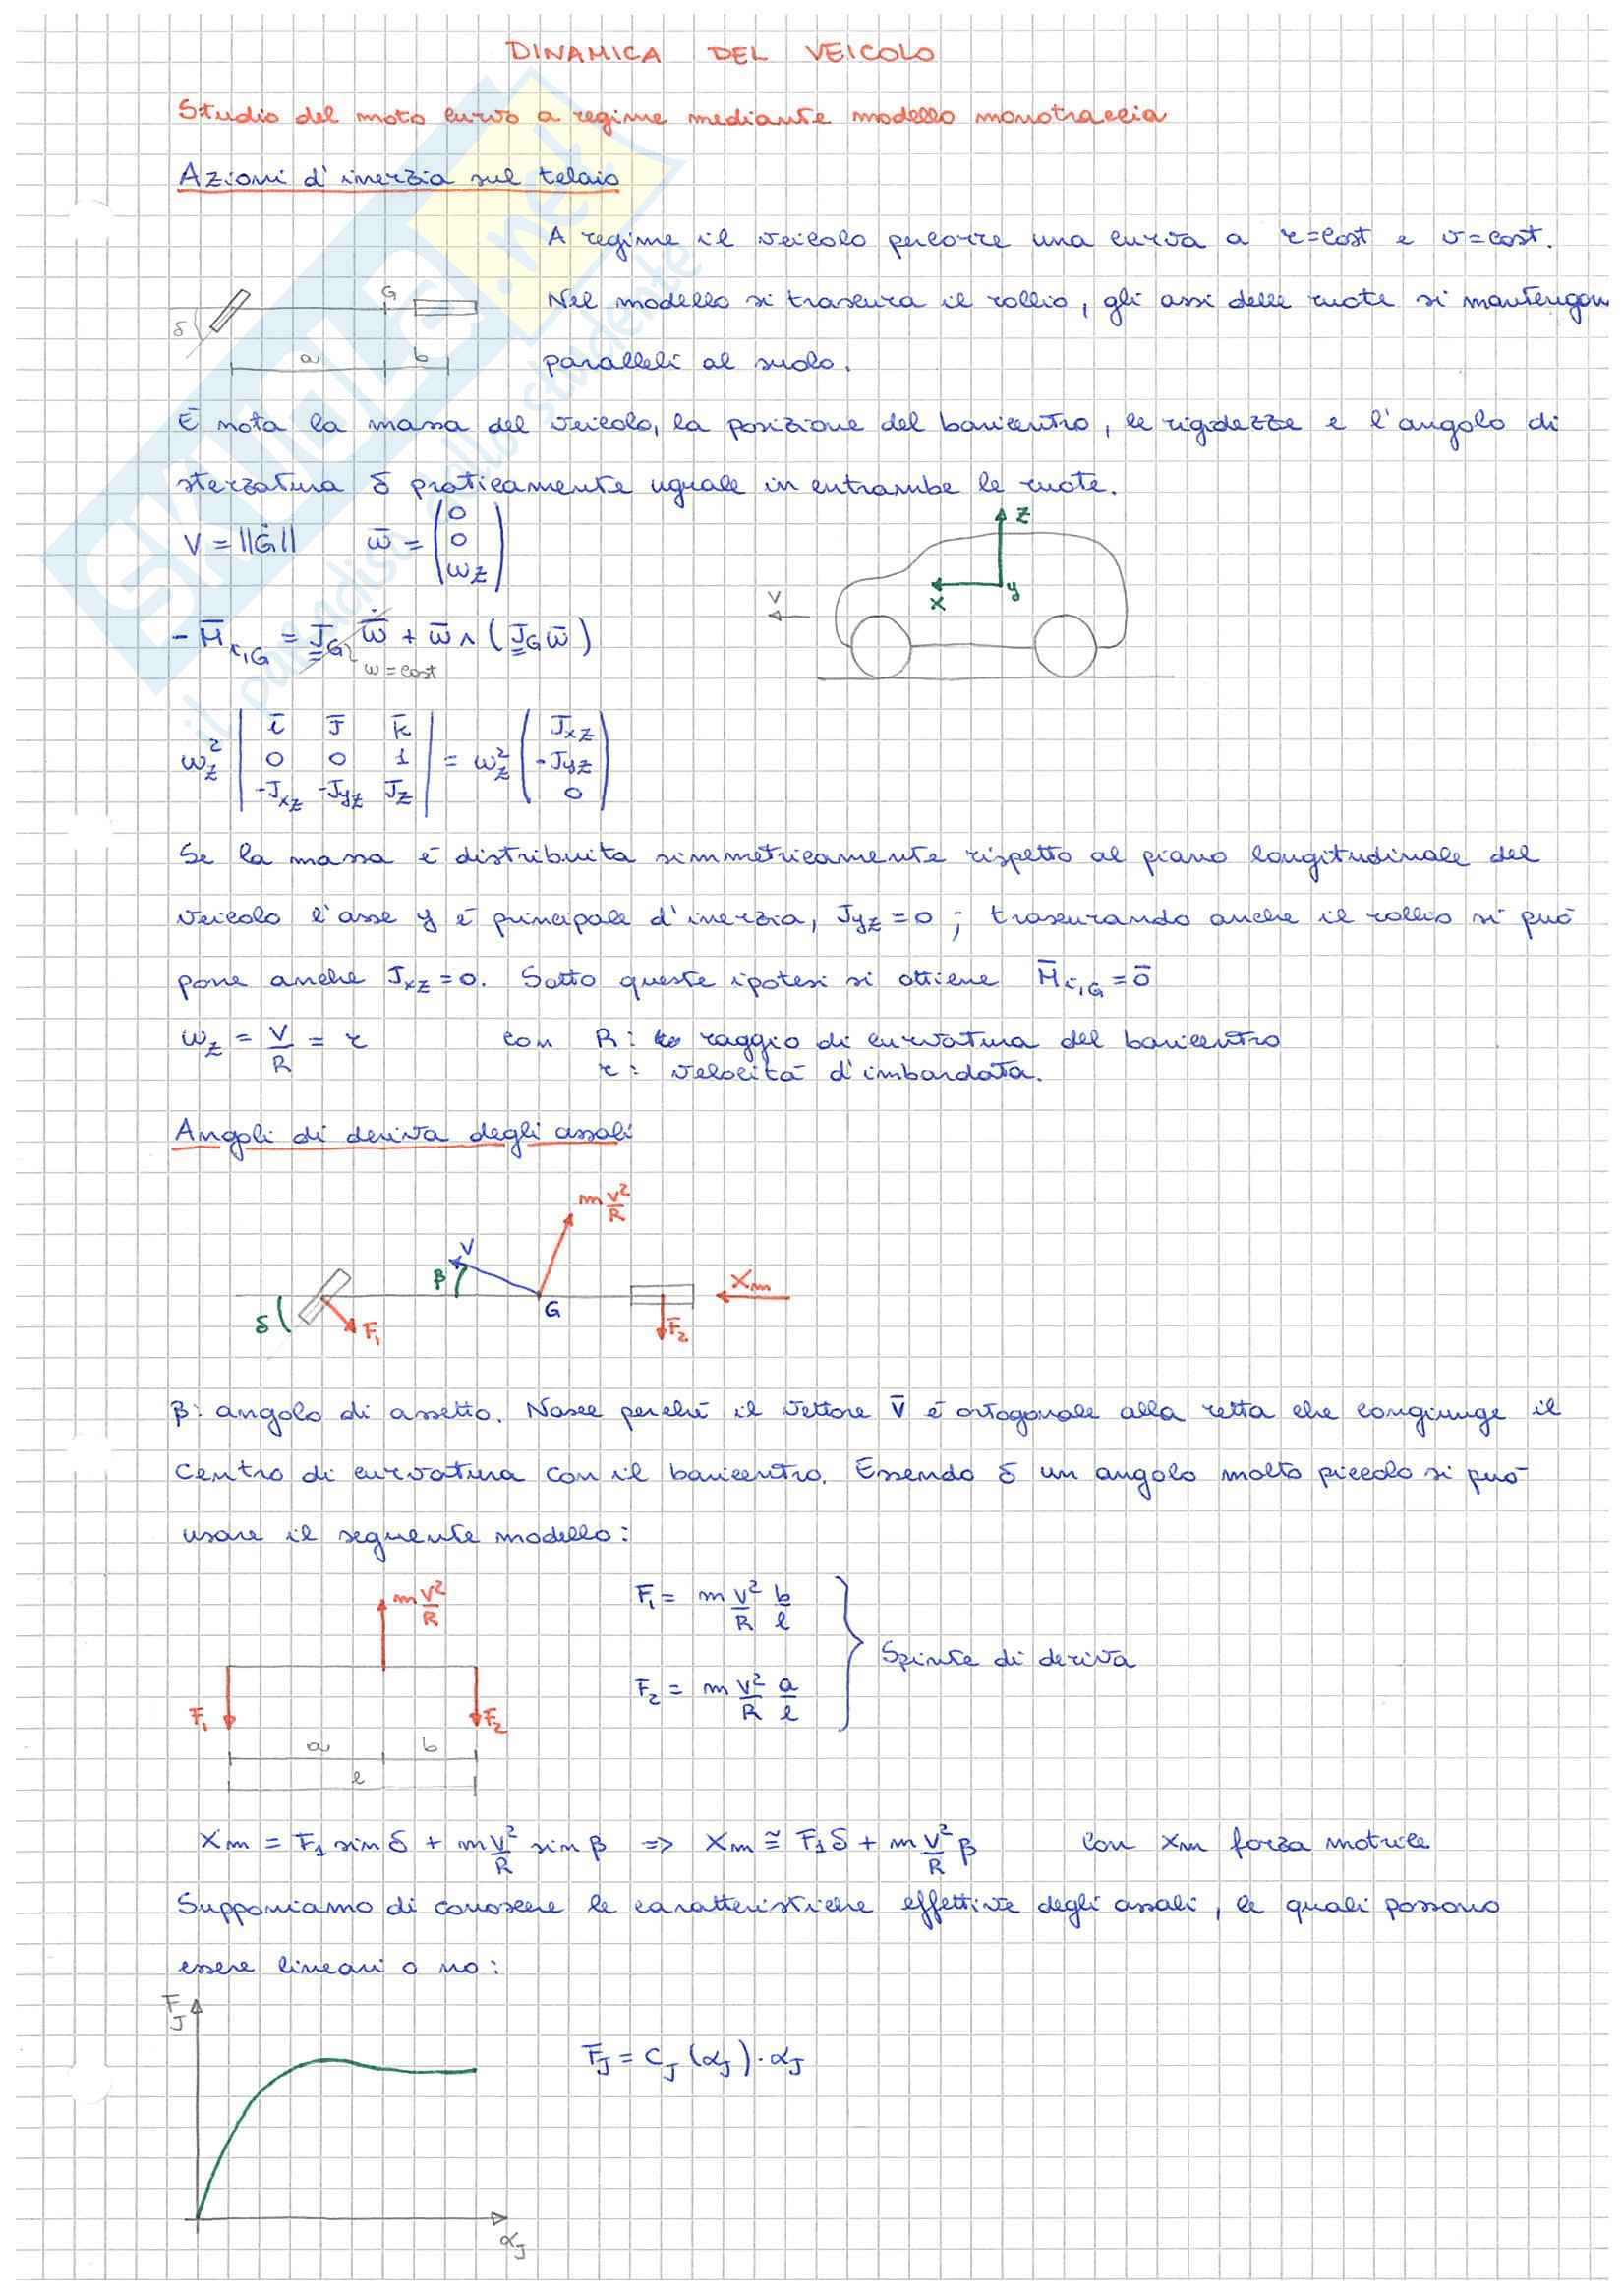 DINAMICA DEL VEICOLO
Studio del moto curvo a regime mediante modello monotraccia
Azioni d'inerzia sul telaio
A regime il veicolo percorre una curva a r=cost e v=cost.
Nel modello si trascura il rollio, gli assi delle ruote si mantengon
paralleli al suolo.
δ G a b
È nota la massa del veicolo, la posizione del baricentro, le rigidezze e l'angolo di
sterzatura δ praticamente uguale in entrambe le ruote.
V = ||Ġ|| ω̄ = (0 0 ωz)
z x y V
- M̄i,G = J̳G ω̄̇ + ω̄ ∧ (J̳G ω̄)
ω = cost
ωz² | ī j̄ k̄ | = ωz² ( Jxz )
| 0 0 1 | ( -Jyz )
| -Jxz -Jyz Jz | ( 0 )
Se la massa è distribuita simmetricamente rispetto al piano longitudinale del
veicolo l'asse y è principale d'inerzia, Jyz = 0 ; trascurando anche il rollio si può
porre anche Jxz = 0. Sotto queste ipotesi si ottiene M̄i,G = ō
ωz = V/R = r con R: raggio di curvatura del baricentro
r: velocità d'imbardata.
Angoli di deriva degli assali
m v²/R
V β G Xm
δ F1 F2
β: angolo di assetto. Nasce perché il vettore V̄ è ortogonale alla retta che congiunge il
centro di curvatura con il baricentro. Essendo δ un angolo molto piccolo si può
usare il seguente modello:
m V²/R
F1 = m V²/R b/l
F2 = m V²/R a/l
Spinte di deriva
F1 F2
a b
l
Xm = F1 sin δ + m V²/R sin β => Xm ≅ F1 δ + m V²/R β con Xm forza motrice
Supponiamo di conoscere le caratteristiche effettive degli assali, le quali possono
essere lineari o no:
FJ
FJ = CJ (αJ) · αJ
αJ
SKUOLA.net
il paradiso dello studente